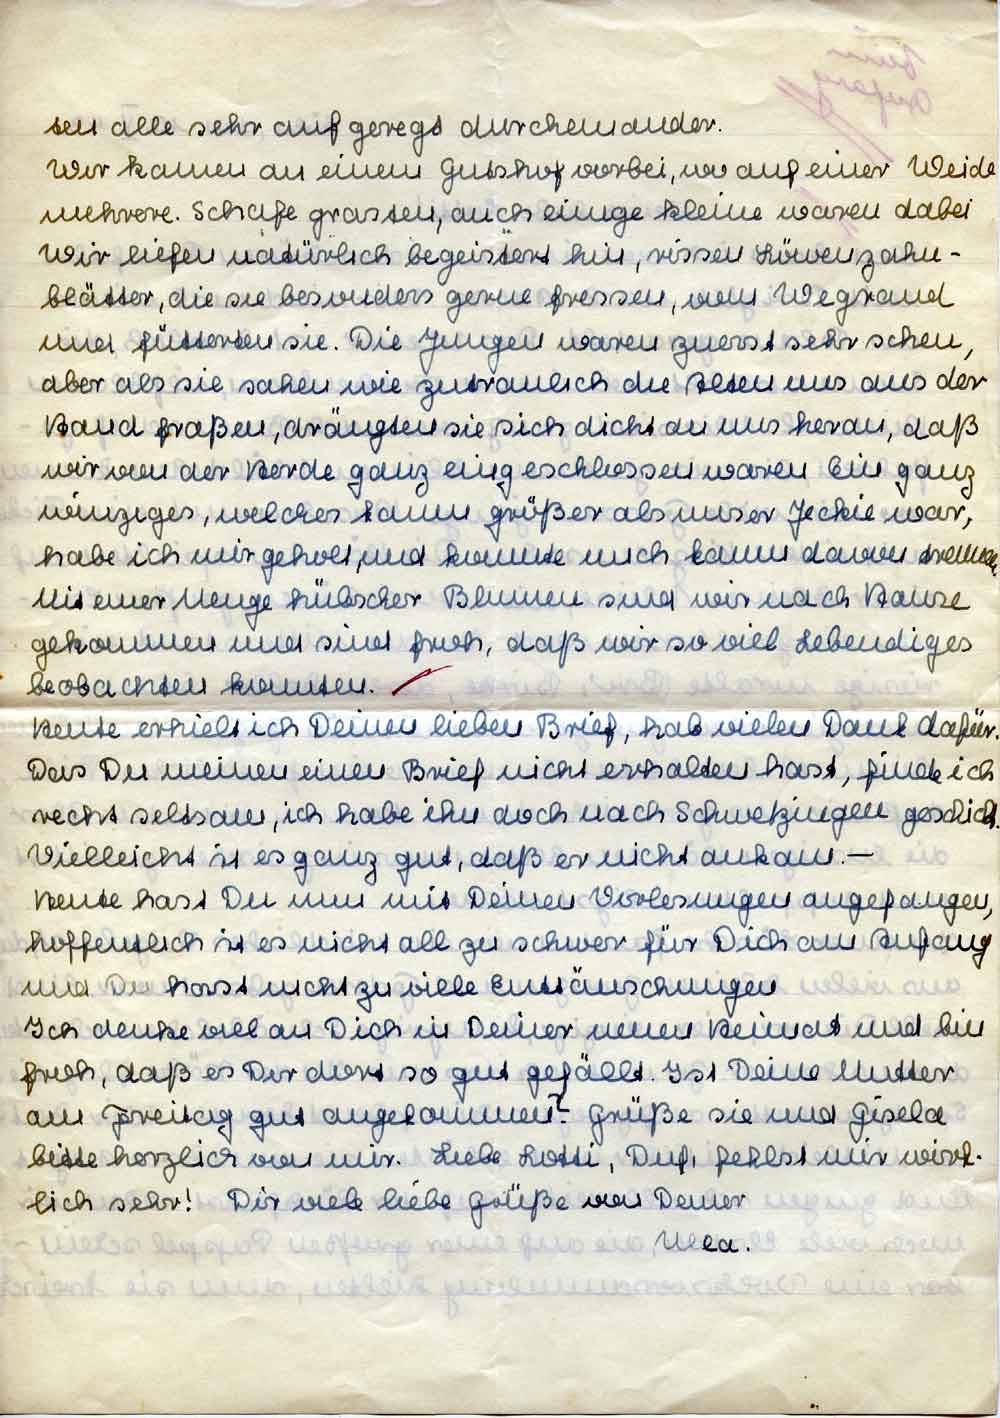 ten alle sehr aufgeregt durcheinander.
Wir kamen an einem Gutshof vorbei, wo auf einer Weide
mehrere Schafe grasten, auch einige kleine waren dabei
Wir liefen natürlich begeistert hin, rissen Löwenzahn-
blätter, die sie besonders gerne fressen, vom Wegrand
und fütterten sie. Die Jungen waren zuerst sehr scheu,
aber als sie sahen wie zutraulich die Alten uns aus der
Hand fraßen, drängten sie sich dicht an uns heran, daß
wir von der Herde ganz eingeschlossen waren Ein ganz
winziges, welches kaum größer als unser Jeckie war,
habe ich mir geholt, und konnte mich kaum davon trennen.
Mit einer Menge hübscher Blumen sind wir nach Hause
gekommen und sind froh, daß wir so viel Lebendiges
beobachten konnten.
Heute erhielt ich Deinen lieben Brief, hab vielen Dank dafür.
Das Du meinen einen Brief nicht erhalten hast, finde ich
recht seltsam, ich habe ihn doch nach Schwetzingen geschickt.
Vielleicht ist es ganz gut, daß er nicht ankam. —
Heute hast Du nun mit Deinen Vorlesungen angefangen,
hoffentlich ist es nicht all zu schwer für Dich am Anfang
und Du hast nicht zu viele Enttäuschungen
Ich denke viel an Dich in Deiner neuen Heimat und bin
froh, daß es Dir dort so gut gefällt. Ist Deine Mutter
am Freitag gut angekommen? Grüße sie und Gisela
bitte herzlich von mir. Liebe Lotti, Du fehlst mir wirk-
lich sehr! Dir viele liebe Grüße von Deiner
Mea.